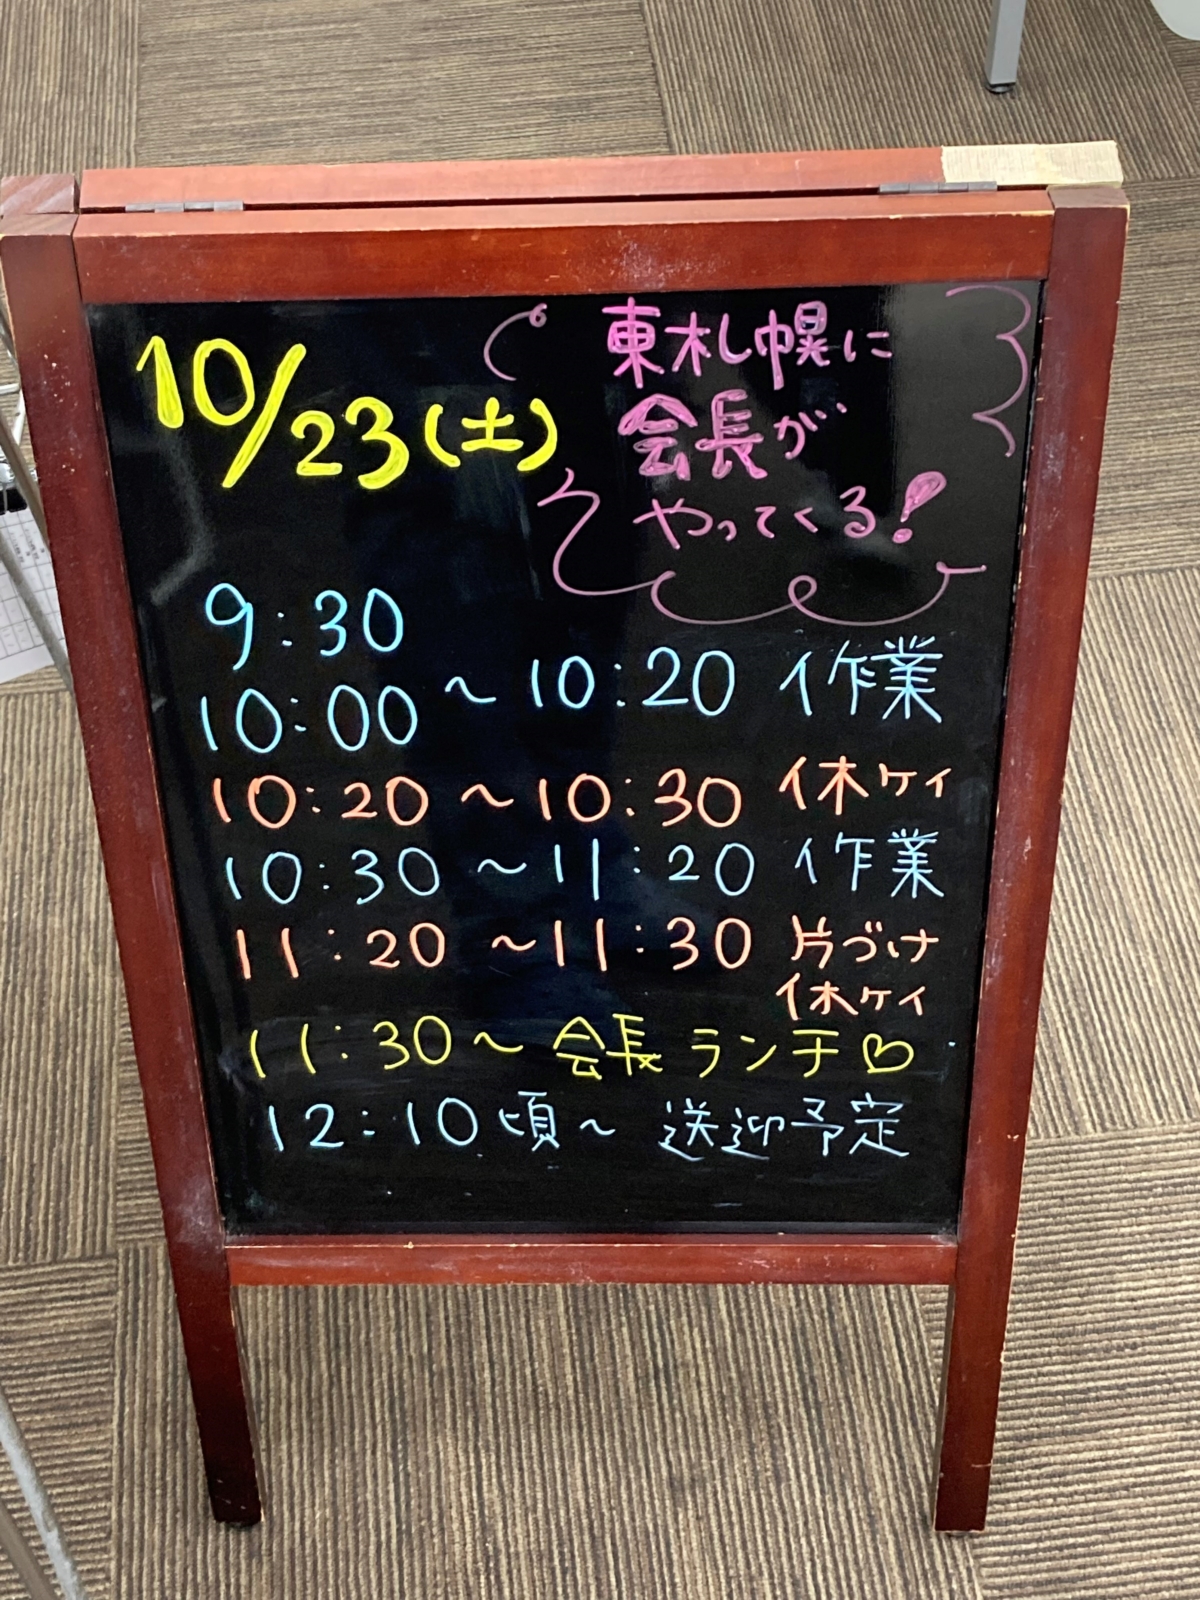 10/23(土)
東札幌に
会長が
やってくる!
9:30
10:00 ~ 10:20 作業
10:20 ~ 10:30 休ケイ
10:30 ~ 11:20 作業
11:20 ~ 11:30 片づけ
休ケイ
11:30 ~ 会長ランチ♡
12:10頃~ 送迎予定